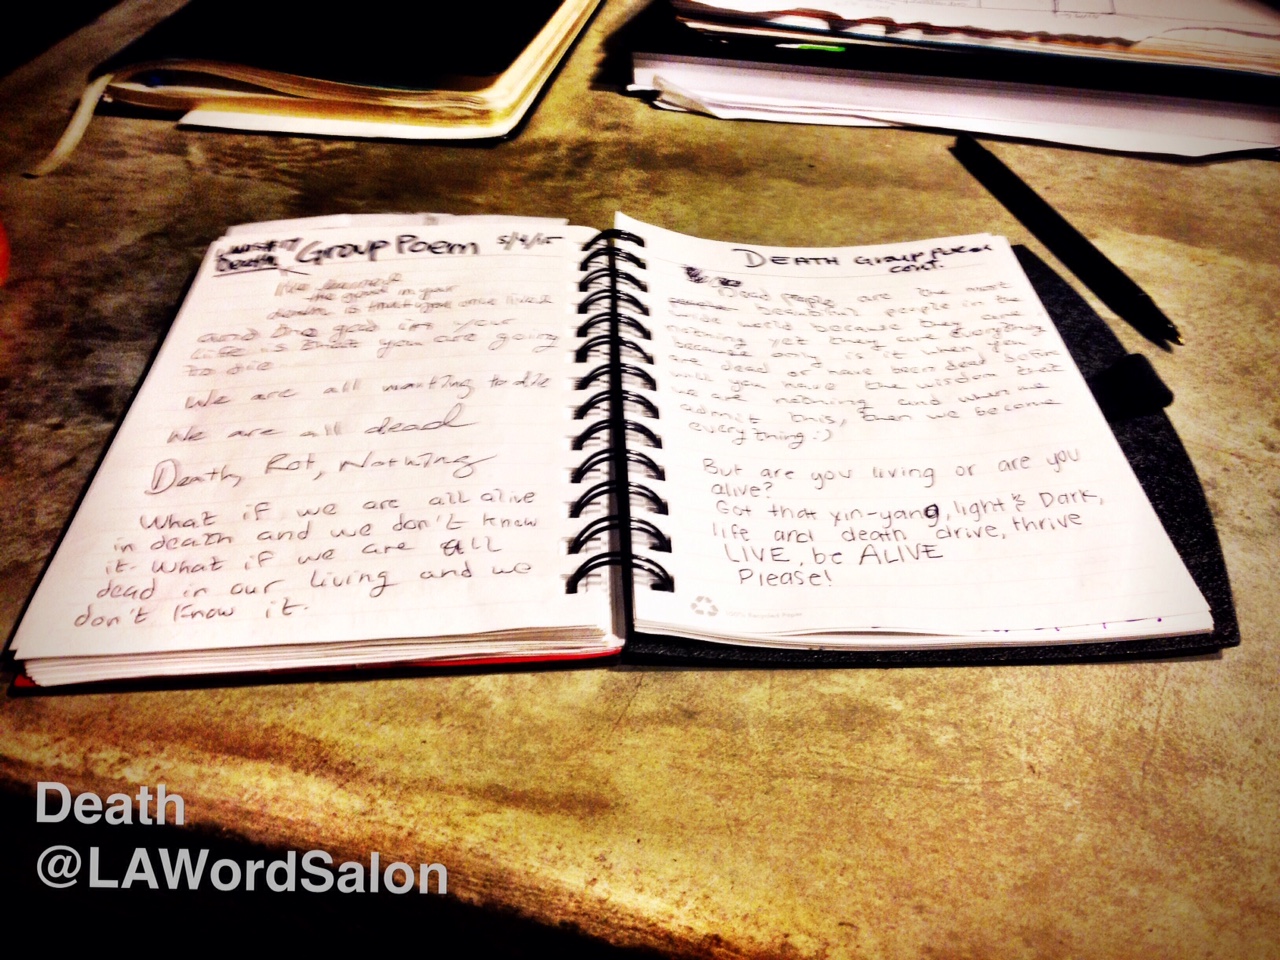 Death Group Poem 5/4/15
I've learned
the good in your
death is that you once lived
and the good in your
life is that you are going
to die
We are all waiting to die
We are all dead
Death, Rot, Nothing
What if we are all alive
in death and we don't know
it. What if we are all
dead in our living and we
don't know it.
DEATH Group Poem
cont.
Dead people are the most
beautiful people in the
wide world because they are
nothing yet they are everything
because only is it when you
are dead or have been dead before
will you have the wisdom that
we are nothing and when we
admit this, then we become
everything :)
But are you living or are you
alive?
Got that yin-yang, light & Dark,
life and death drive, thrive
LIVE, be ALIVE
Please!
Death
@LAWordSalon